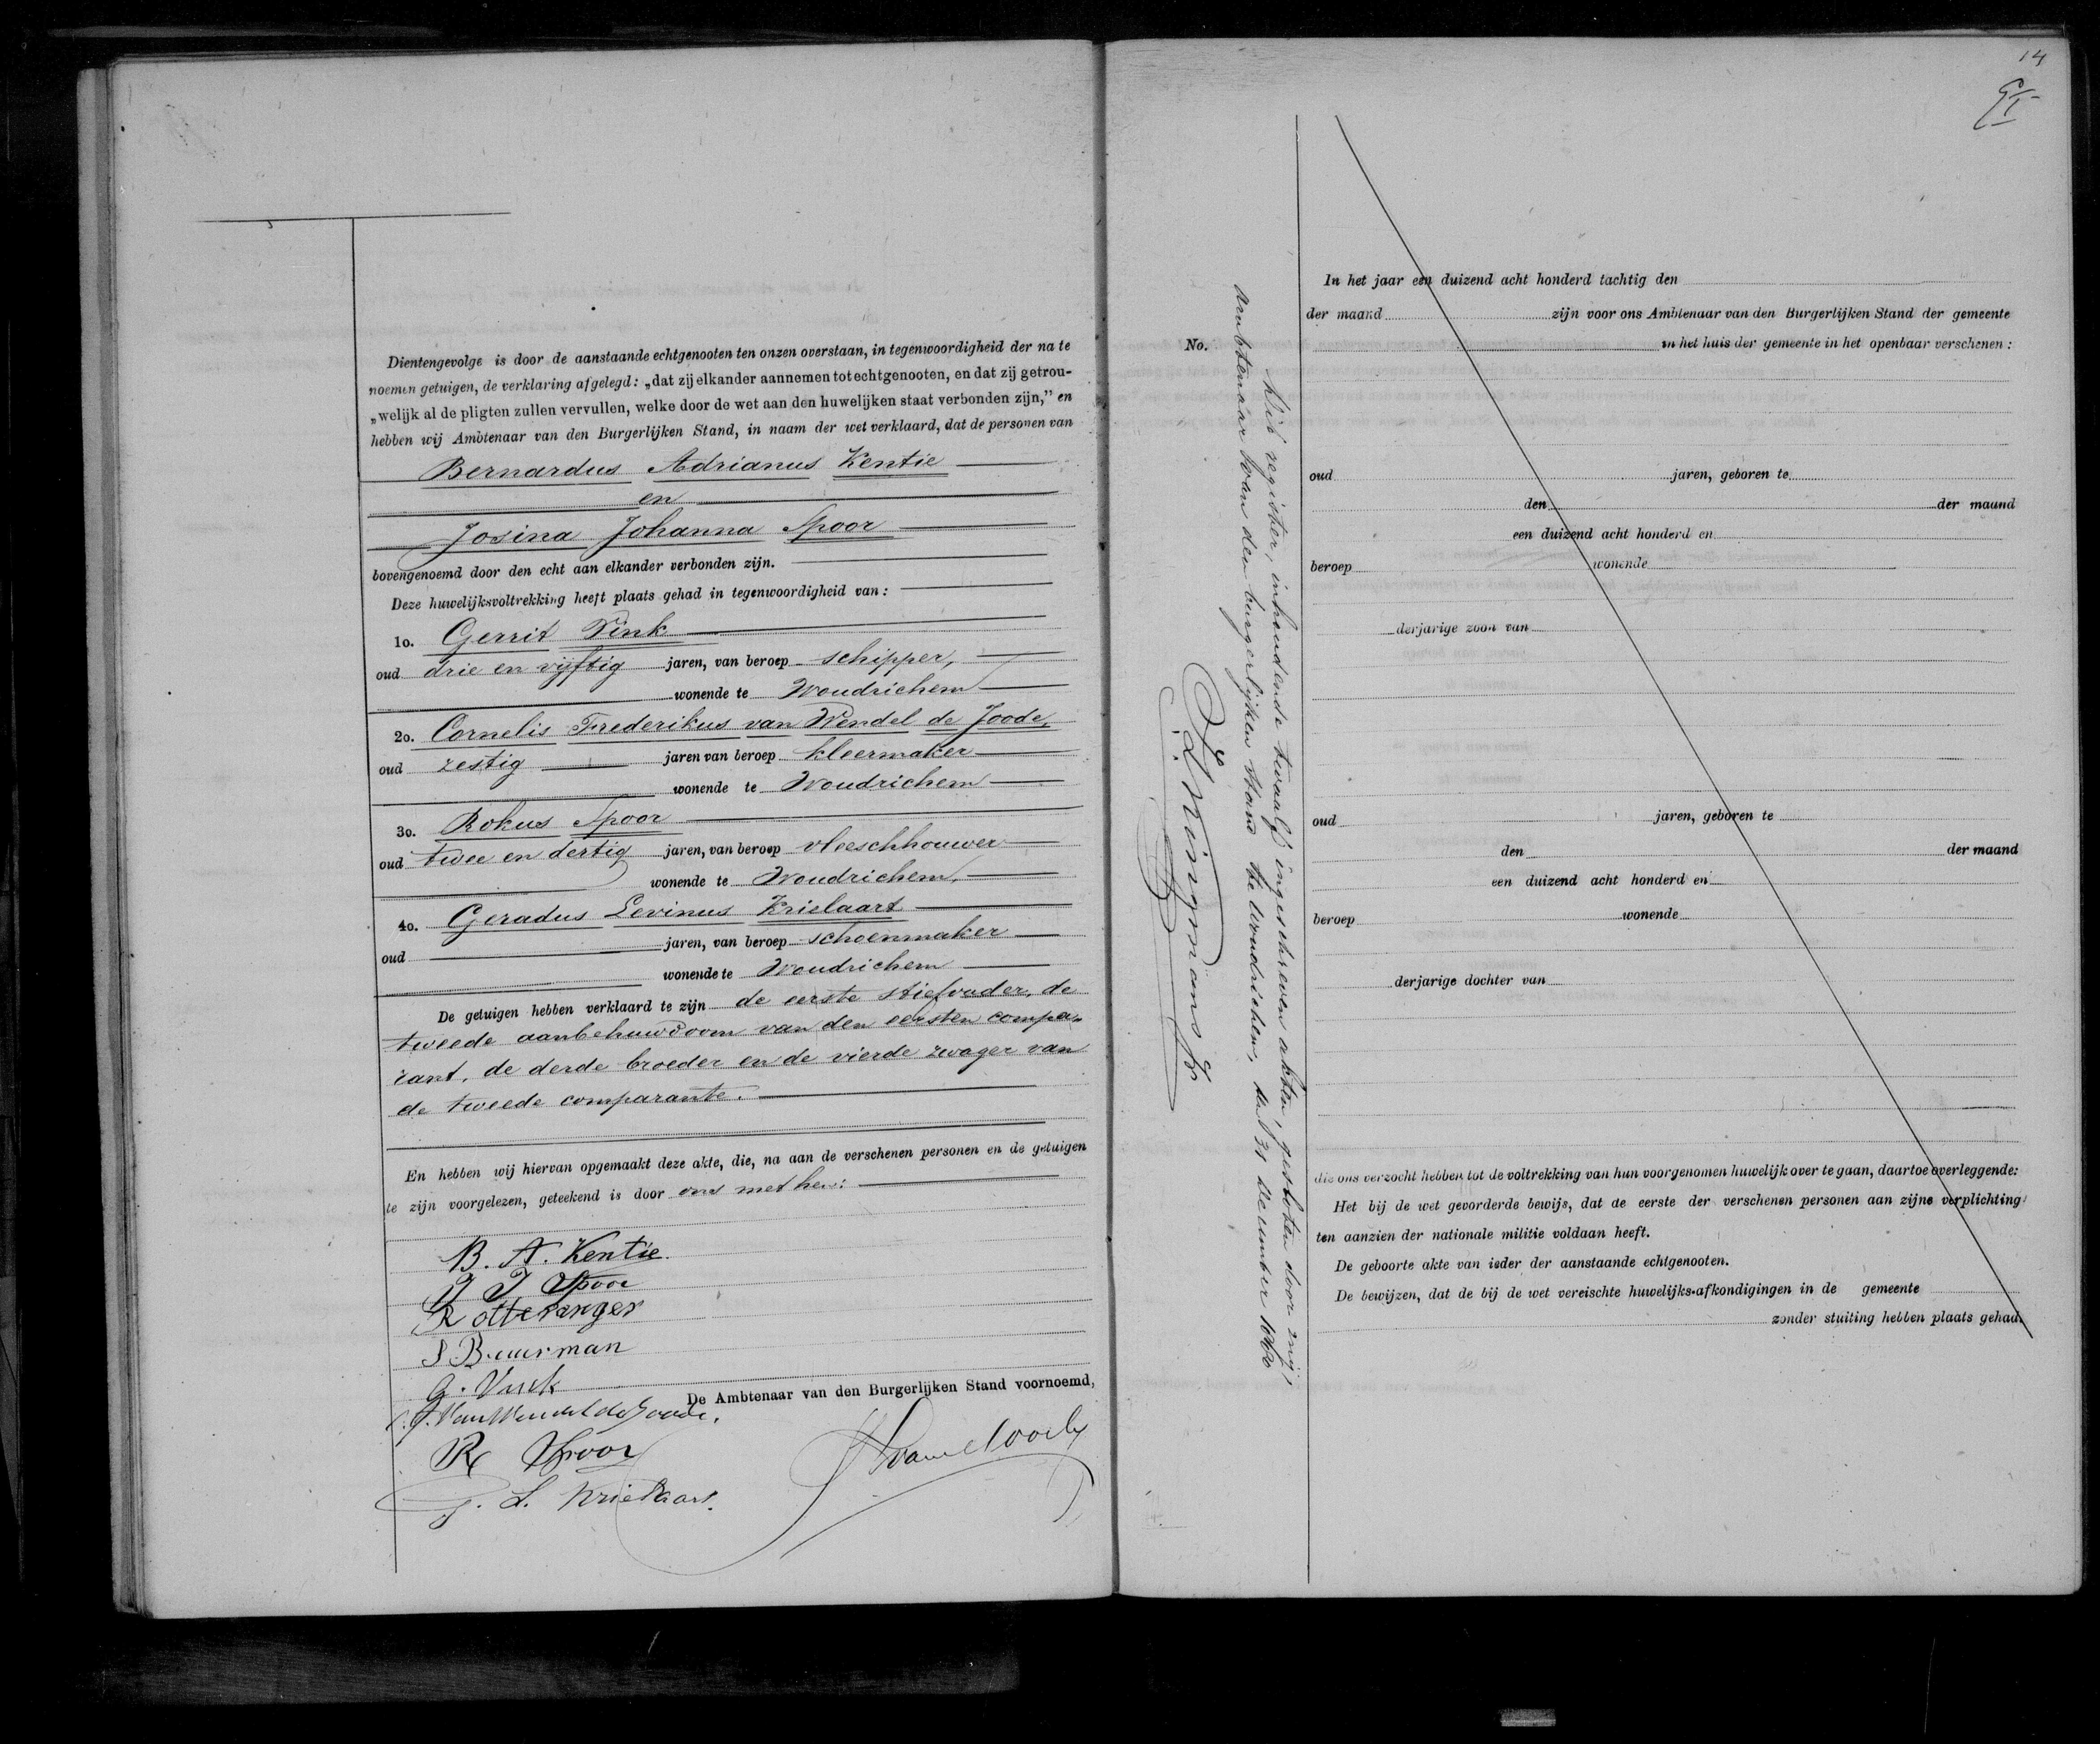 Dientengevolge is door de aanstaande echtgenooten ten onzen overstaan, in tegenwoordigheid der na te
noemen getuigen, de verklaring afgelegd: „dat zij elkander aannemen tot echtgenooten, en dat zij getrou-
„welijk al de pligten zullen vervullen, welke door de wet aan den huwelijken staat verbonden zijn,” en
hebben wij Ambtenaar van den Burgerlijken Stand, in naam der wet verklaard, dat de personen van
Bernardus Adrianus Kentie
en
Josina Johanna Spoor
bovengenoemd door den echt aan elkander verbonden zijn.
Deze huwelijksvoltrekking heeft plaats gehad in tegenwoordigheid van:
1o. Gerrit Vink
oud drie en vijftig jaren, van beroep schipper,
wonende te Woudrichem
2o. Cornelis Frederikus van Wendel de Joode,
oud zestig jaren van beroep kleermaker
wonende te Woudrichem
3o. Rokus Spoor
oud twee en dertig jaren, van beroep vleeschhouwer
wonende te Woudrichem,
4o. Geradus Levinus Krielaart
oud jaren, van beroep schoenmaker
wonende te Woudrichem
De getuigen hebben verklaard te zijn de eerste stiefvader, de
tweede aanbehuwdoom van den eersten compa-
rant, de derde broeder en de vierde zwager van
de tweede comparante.
En hebben wij hiervan opgemaakt deze akte, die, na aan de verschenen personen en de getuigen
te zijn voorgelezen, geteekend is door ons met hen:
B. A. Kentie.
J J Spoor
K otteranger
S Buurman
G. Vink
De Ambtenaar van den Burgerlijken Stand voornoemd,
C. F. Van Wendel de Joode.
R Spoor
G. L. Krielaart.
14
No.
Dit register, inhoudende twaalf ingeschreven akten, gesloten door mij,
Ambtenaar van den burgerlijken stand te Woudrichem, den 31 December 1880
In het jaar een duizend acht honderd tachtig den
der maand zijn voor ons Ambtenaar van den Burgerlijken Stand der gemeente
in het huis der gemeente in het openbaar verschenen:
oud jaren, geboren te
den der maand
een duizend acht honderd en
beroep wonende
derjarige zoon van
oud jaren, geboren te
den der maand
een duizend acht honderd en
beroep wonende
derjarige dochter van
die ons verzocht hebben tot de voltrekking van hun voorgenomen huwelijk over te gaan, daartoe overleggende:
Het bij de wet gevorderde bewijs, dat de eerste der verschenen personen aan zijne verplichting
ten aanzien der nationale militie voldaan heeft.
De geboorte akte van ieder der aanstaande echtgenooten.
De bewijzen, dat de bij de wet vereischte huwelijks-afkondigingen in de gemeente
zonder stuiting hebben plaats gehad.